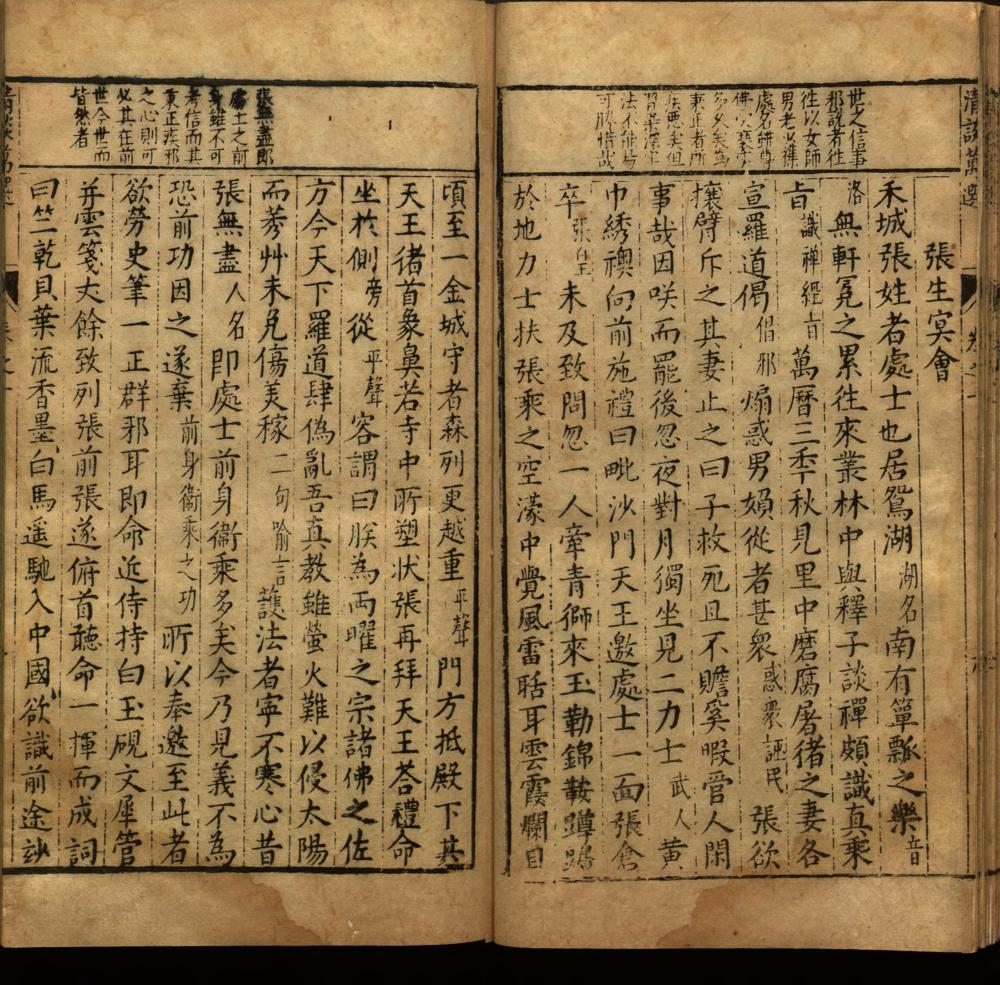 清談萬選
卷之一
世之信事
邪說者徃
徃以女師
男老必襍
處名緋尊
佛
多矣矣為
妻止者所
疾悪矣但
習染深牢
法不能易
可勝惜哉
張生冥會
禾城張姓者處士也居鴛湖湖名南有簞瓢之樂音
洛無軒冕之累徃來叢林中與釋子談禪頗識真乘
㫖識禪經㫖萬曆三年秋見里中磨腐屠猪之妻各
宣羅道偈倡邪煽惑男婦從者甚衆惑衆誣民張欲
攘臂斥之其妻止之曰子救死且不贍奚暇管人閑
事哉因咲而罷後忽夜對月獨坐見二力士武人黃
巾綉襖向前施禮曰毗沙門天王邀處士一面張倉
卒張皇未及致問忽一人牽青獅來玉勒錦鞍蹲踞
於地力士扶張乘之空濛中覺風雷聒耳雲霞爛目
張無盡即
處士之前
身雖不可
考信而其
秉正疾邪
之心則可
必其在前
世今世而
皆然者
頃至一金城守者森列更越重平聲門方抵殿下其
天王猪首象鼻若寺中所塑状張再拜天王荅禮命
坐於側旁從平聲容謂曰朕為両曜之宗諸佛之佐
方今天下羅道肆偽亂吾真教雖螢火難以侵太陽
而莠艸未免傷美稼二句喻言護法者寧不寒心昔
張無盡人名即處士前身衛乘多矣今乃見義不為
恐前功因之遂棄前身衛乘之功所以奉邀至此者
欲勞史筆一正群邪耳即命近侍持白玉硯文犀管
并雲箋丈餘致列張前張遂俯首聽命一揮而成詞
曰竺乾貝葉流香墨白馬遥馳入中國欲識前途玅